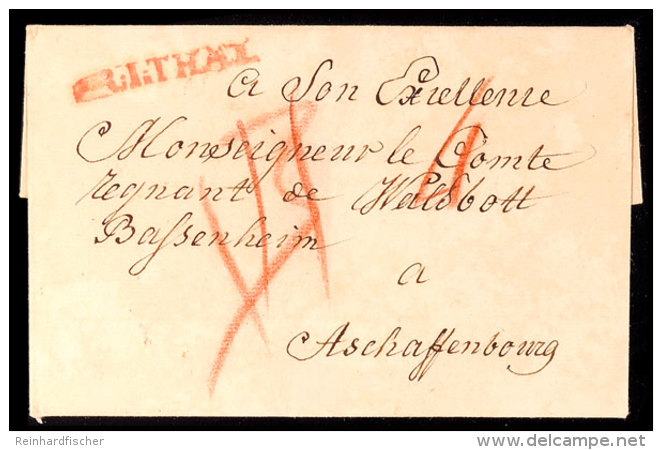 R.I.THAL
a Son Excellence
Monseigneur le Comte
regnant de Waldbott
Bassenheim
a
Aschaffenbourg
4
Reinhardfischer
delcampe.net